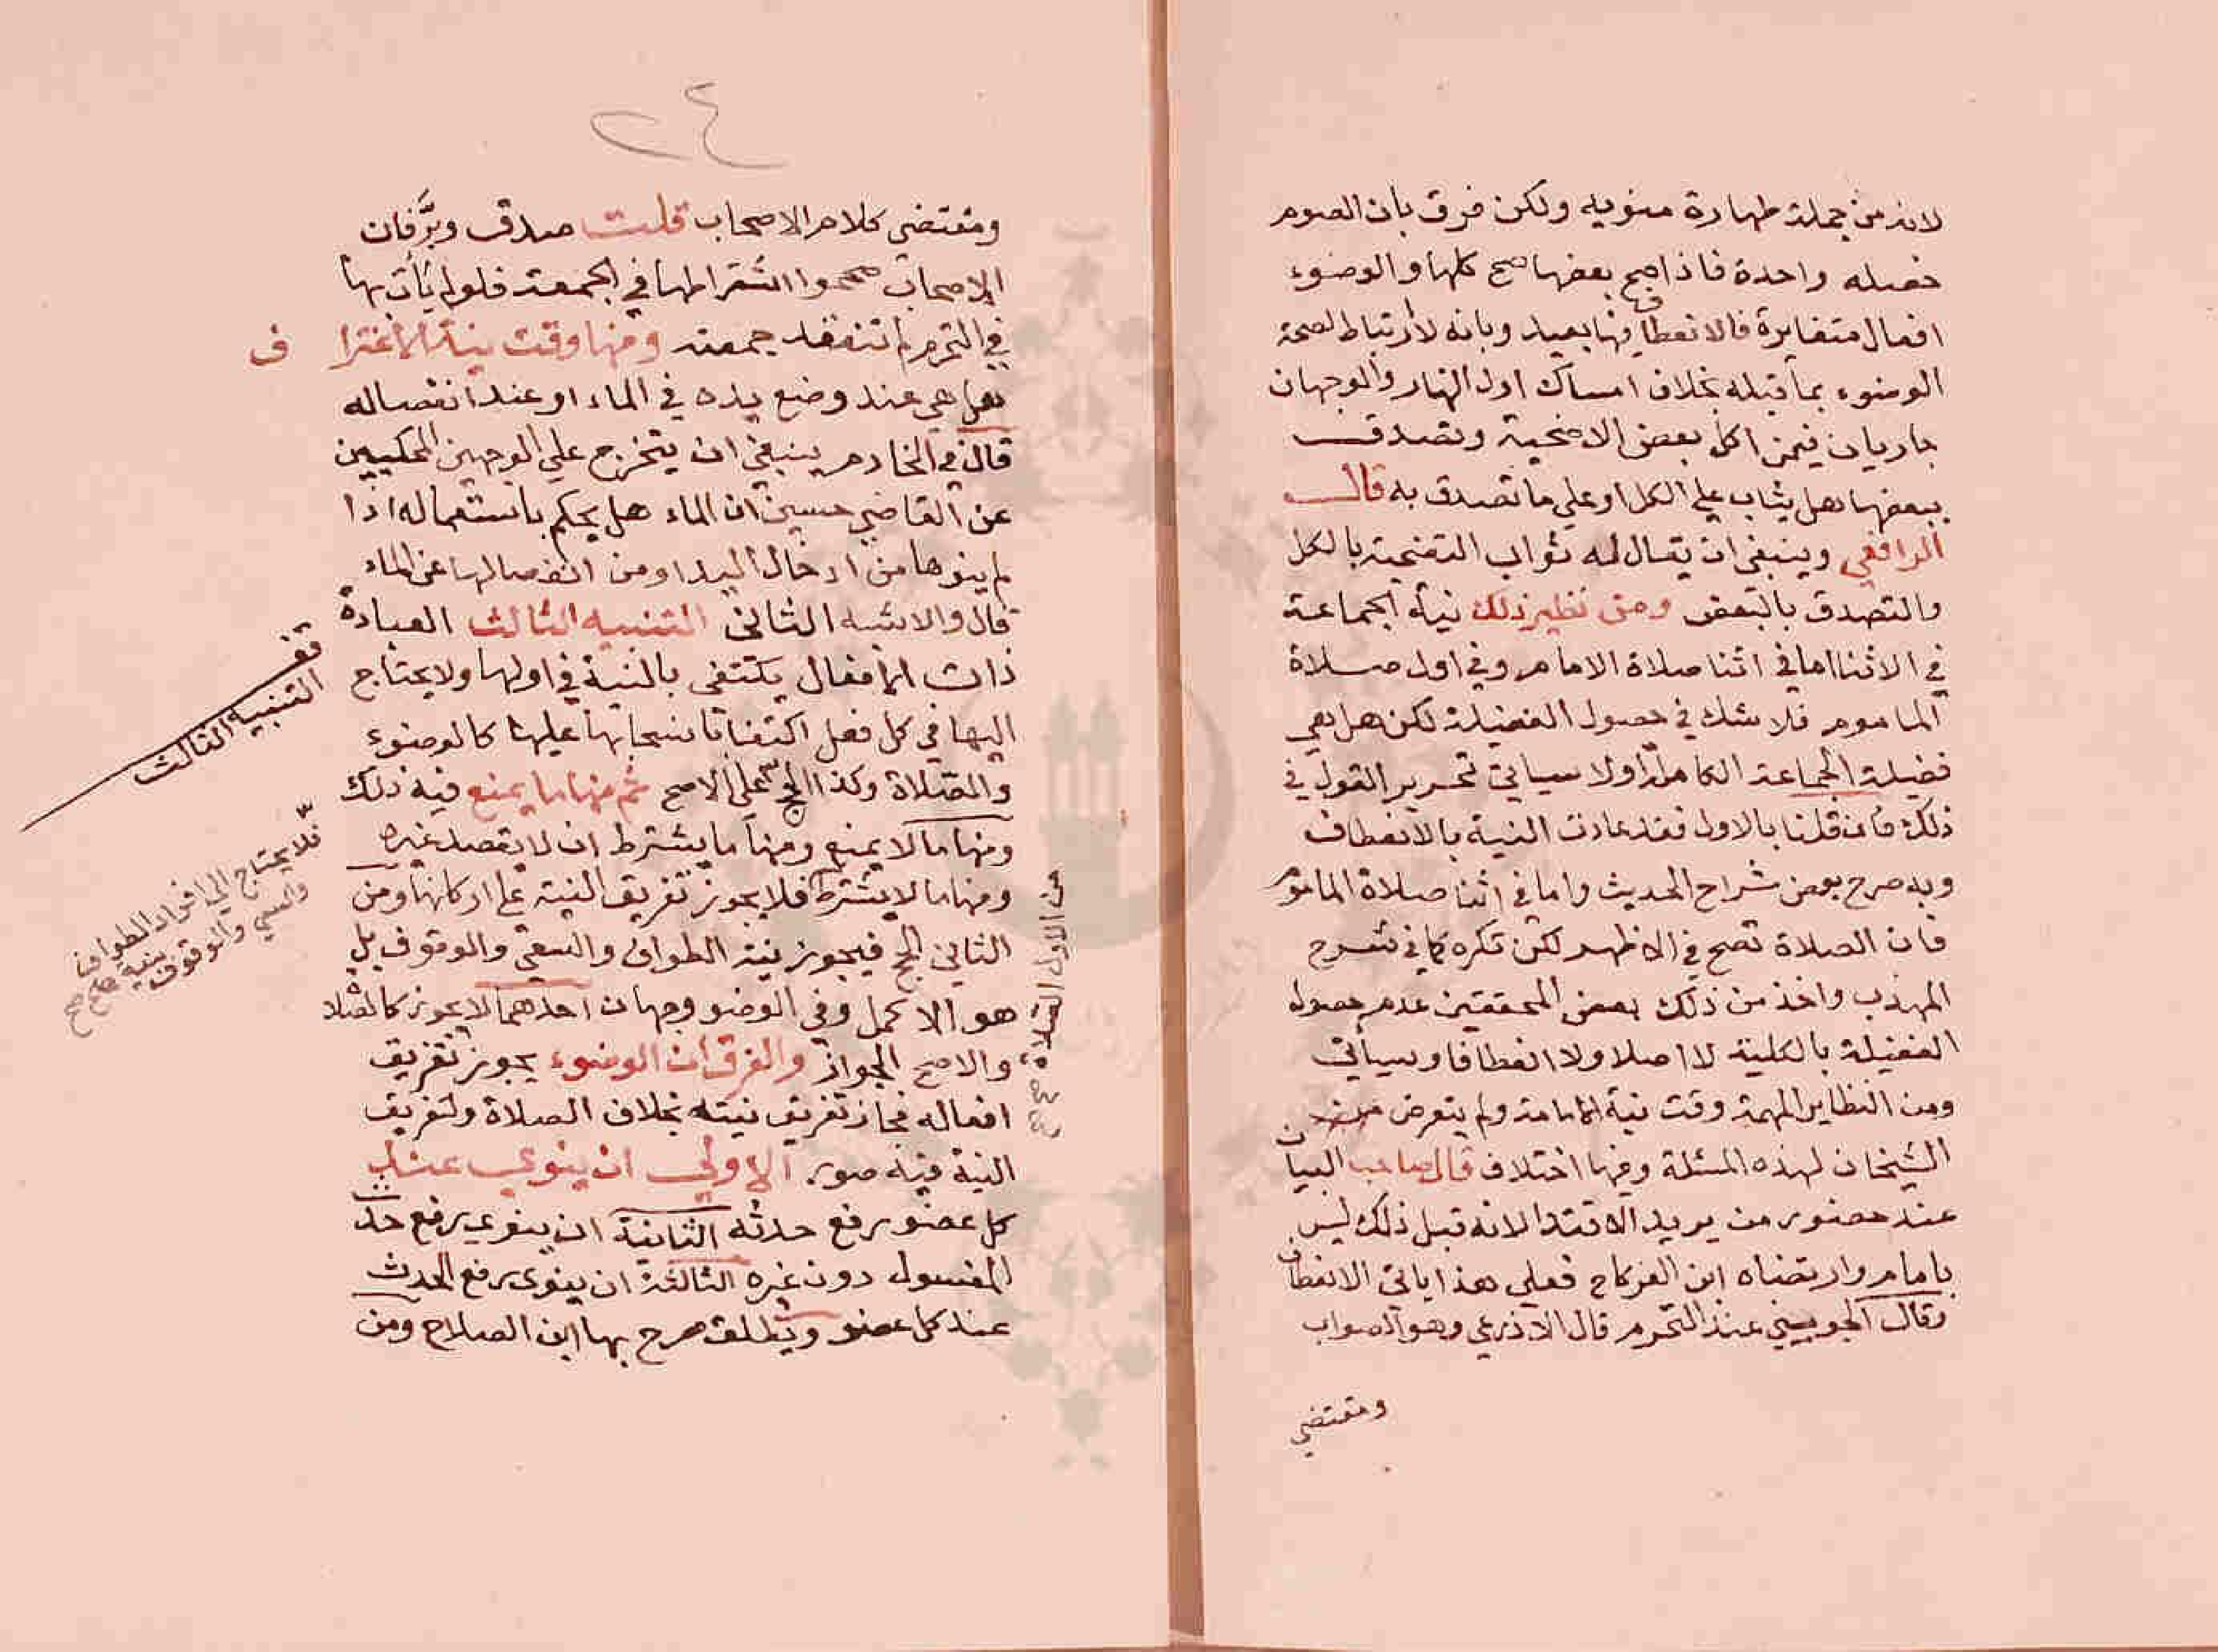 لانه من جملة طهارة منويه ولكن فرق بان الصوم
خصله واحدة فاذا صح بعضها صح كلها والوضوء
افعال متغايرة فالانعطاف فيها بعيد وبانه لا ارتباط لصحة
الوضوء بما قبله بخلاف امساك اول النهار والوجهان
جاريان فيمن اكل بعض الاضحية وتصدق
ببعضها هل يثاب علي الكل او علي ما تصدق به قال
الرافعي وينبغي ان يقال له ثواب التضحية بالكل
والتصدق بالبعض ومن نظير ذلك نية الجماعة
في الاثنا اما في اثنا صلاة الامام وفي اول صلاة
الماموم فلا شك في حصول الفضيلة لكن هل هي
فضيلة الجماعة الكاملة او لا سياتي تحرير القول في
ذلك فان قلنا بالاول فقد عادت النية بالانعطاف
وبه صرح بعض شراح الحديث واما في اثنا صلاة الماموم
فان الصلاة تصح في الاظهر لكن تكره كما في شرح
المهذب واخذ من ذلك بعض المحققين عدم حصول
الفضيلة بالكلية لا اصلا ولا انعطافا وسياتي
ومن النظاير المهمة وقت نية الامامة ولم يتعرض
الشيخان لهذه المسئلة وفيها اختلاف قال صاحب البيان
عند حضور من يريد الاقتدا لانه قبل ذلك ليس
بامام وارتضاه ابن الفركاح فعلي هذا ياتي الانعطاف
وقال الجويني عند التحرم قال الاذرعي وهو الصواب
ومقتضي
٢٤
ومقتضي كلام الاصحاب قلت صدق وبر فان
الاصحاب صححوا اشتراطها في الجمعة فلو لم يأت بها
في التحرم لم تنعقد جمعته ومنها وقت نية الاغتراف
هل هي عند وضع يده في الماء او عند انفصاله
قال في الخادم ينبغي ان يتخرج علي الوجهين المحكيين
عن القاضي حسين ان الماء هل يحكم باستعماله اذا
لم ينوها من ادخال اليد او من انفصالها عن الماء
قال والاشبه الثاني التنبيه الثالث العبادة
ذات الافعال يكتفي بالنية في اولها ولا يحتاج
اليها في كل فعل اكتفا بانسحابها عليها كالوضوء
والصلاة وكذا الحج علي الاصح ثم منها ما يمنع فيه ذلك
ومنها ما لا يمنع ومنها ما يشترط ان لا يقصد غيره
ومنها ما لا يشترط فلا يجوز تفريق النية علي اركانها ومن
الثاني الحج فيجوز نية الطواف والسعي والوقوف بل
هو الاكمل وفي الوضو وجهان احدهما لا يجوز كالصلاة
والاصح الجواز والفرق ان الوضوء يجوز تفريق
افعاله فجاز تفريق نيته بخلاف الصلاة ولتفريق
النية فيه صور الاولي ان ينوي عند
كل عضو رفع حدثه الثانية ان ينوي رفع حدث
المغسول دون غيره الثالثة ان ينوي رفع الحدث
عند كل عضو ويطلق صرح بها ابن الصلاح ومن
قف
التنبيه الثالث
فلا يحتاج الي افراد الطواف
والسعي والوقوف بنية صح
من الاول الصلاة